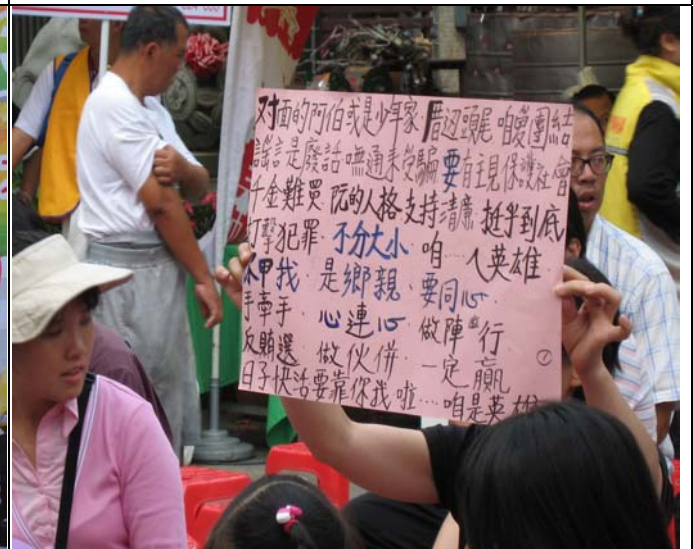 对面的阿伯或是少年家 厝边頭尾 咱愛團結
謠言是廢話 嘸通來受騙 要有主見保護社會
千金難買 阮的人格 支持清廉 挺乎到底
打擊犯罪.不分大小.咱....人英雄
甲我.是鄉親、要同心.
手牽手 心連心 做陣 行
反賄選.做伙併.一定贏
日子快活要靠你我啦....咱是英雄
①